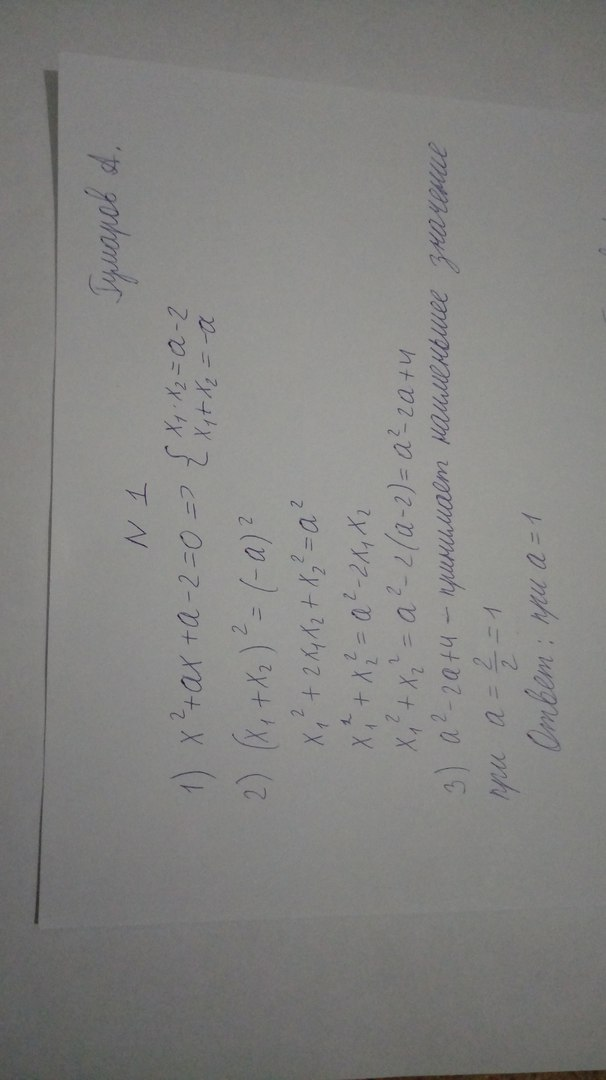 Гумаров А.
N 1
1) x²+ax+a-2=0 => { x₁·x₂=a-2
x₁+x₂=-a
2) (x₁+x₂)²=(-a)²
x₁²+2x₁x₂+x₂²=a²
x₁²+x₂²=a²-2x₁x₂
x₁²+x₂²=a²-2(a-2)=a²-2a+4
3) a²-2a+4 - принимает наименьшее значение
при a=2/2=1
Ответ: при a=1